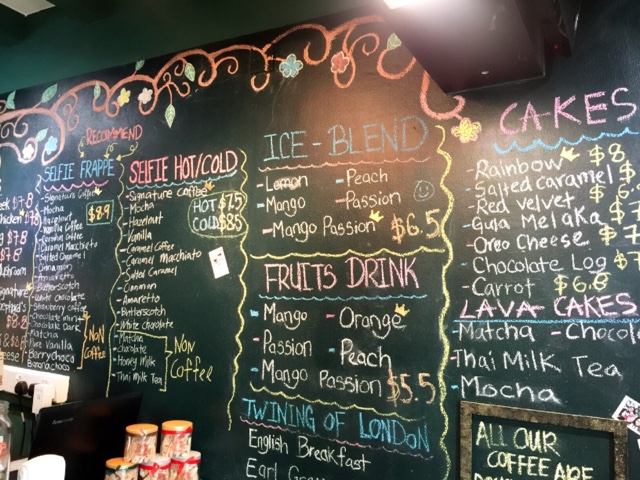 RECOMMEND
SELFIE FRAPPE
Signature Coffee
Mocha
Hazelnut
Vanilla Coffee
Caramel Coffee
Caramel Macchiato
Salted Caramel
Cinnamon
Amaretto
Butterscotch
White Chocolate
Strawberry Coffee
Chocolate
Chocolate Dark
Matcha
Pure Vanilla
Berrychoco
Bananachoco
$8.9
NON
COFFEE
SELFIE HOT/COLD
- Signature Coffee
- Mocha
- Hazelnut
- Vanilla
- Caramel Coffee
- Caramel Macchiato
- Salted Caramel
- Cinnamon
- Amaretto
- Butterscotch
- White Chocolate
- Matcha
- Chocolate
- Honey Milk
- Thai Milk Tea
HOT $7.5
COLD $8.5
NON
COFFEE
ICE-BLEND
- Lemon - Peach
- Mango - Passion
- Mango Passion $6.5
FRUITS DRINK
- Mango - Orange
- Passion - Peach
- Mango Passion $5.5
TWINING OF LONDON
English Breakfast
Earl
CAKES
- Rainbow $8
- Salted Caramel $
- Red Velvet $6.
- Gula Melaka $7
- Oreo Cheese $7
- Chocolate Log $7
- Carrot $6.6
LAVA-CAKES
- Matcha - Chocol
- Thai Milk Tea
- Mocha
ALL OUR
COFFEE ARE